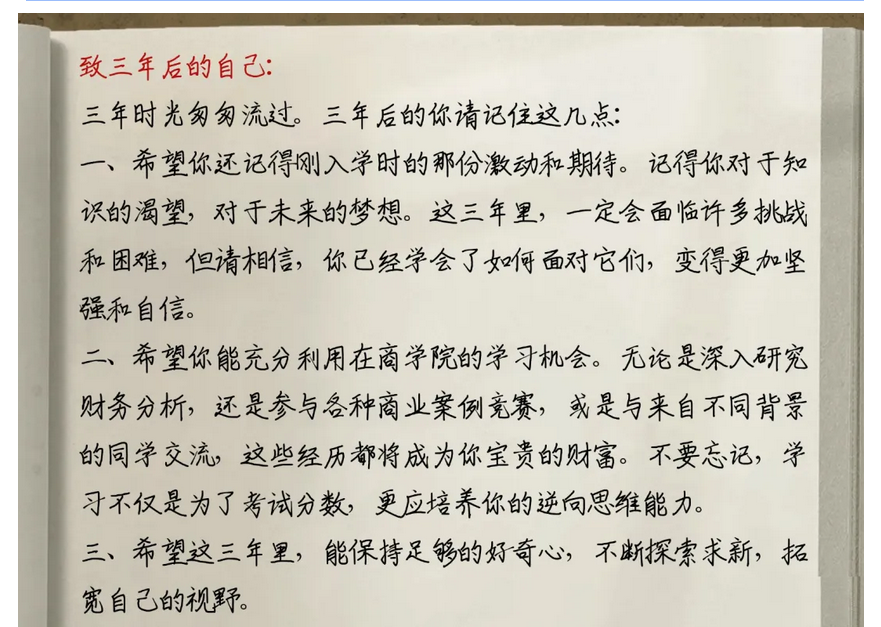 致三年后的自己:
三年时光匆匆流过。三年后的你请记住这几点:
一、希望你还记得刚入学时的那份激动和期待。记得你对于知
识的渴望,对于未来的梦想。这三年里,一定会面临许多挑战
和困难,但请相信,你已经学会了如何面对它们,变得更加坚
强和自信。
二、希望你能充分利用在商学院的学习机会。无论是深入研究
财务分析,还是参与各种商业案例竞赛,或是与来自不同背景
的同学交流,这些经历都将成为你宝贵的财富。不要忘记,学
习不仅是为了考试分数,更应培养你的逆向思维能力。
三、希望这三年里,能保持足够的好奇心,不断探索求新,拓
宽自己的视野。